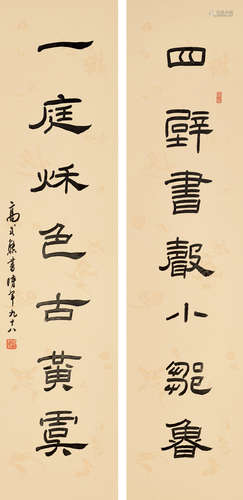 四壁書聲小鄒魯
一庭秌色古黃虞
高式熊書時年九十八